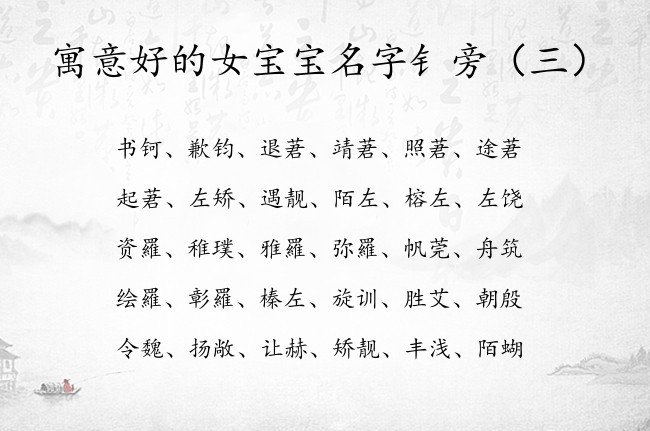 寓意好的女宝宝名字钅旁（三）
书钶、歉钧、退莙、靖莙、照莙、途莙
起莙、左矫、遇靓、陌左、榕左、左饶
资羅、稚璞、雅羅、弥羅、帆莞、舟筑
绘羅、彰羅、榛左、旋训、胜艾、朝殷
令魏、扬敞、让赫、矫靓、丰浅、陌蝴